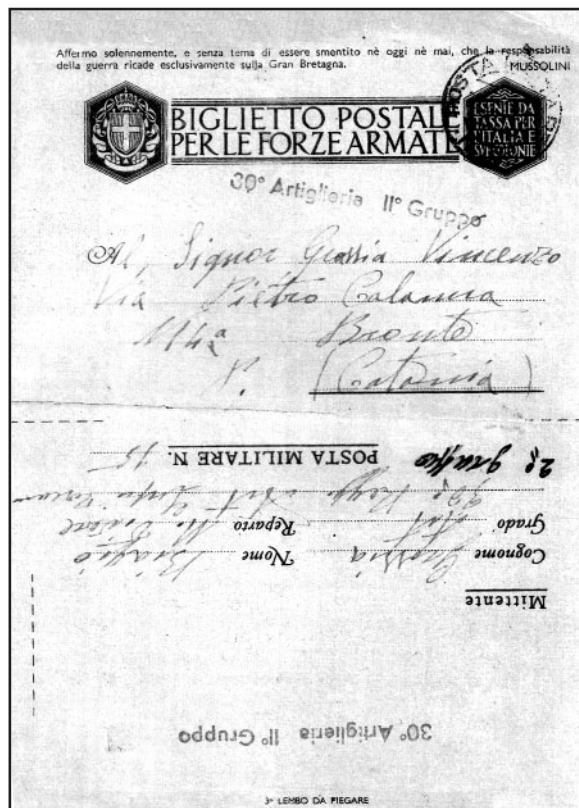 Affermo solennemente, e senza tema di essere smentito nè oggi nè mai, che la responsabilità
della guerra ricade esclusivamente sulla Gran Bretagna. MUSSOLINI
BIGLIETTO POSTALE
PER LE FORZE ARMATE
ESENTE DA
TASSA PER
L'ITALIA E
POSTA
30° Artiglieria II° Gruppo
Al Signor Grassia Vincenzo
Via Pietro Calanna
114a Bronte
(Catania)
Mittente
Cognome Grassia Nome Biagio
Grado Reparto
30° Regg. Art.
POSTA MILITARE N. 75
2°
30° Artiglieria II° Gruppo
3° LEMBO DA PIEGARE